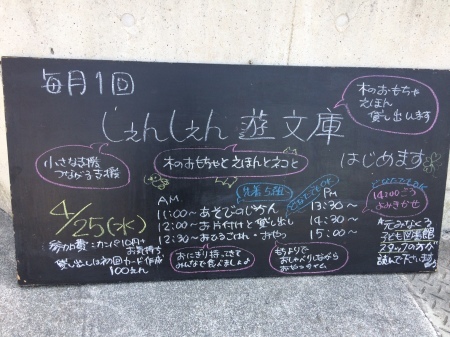 毎月1回
しぇんしぇん 遊 文庫
木のおもちゃ
えほん
貸し出します
小さなお膝
つながるお膝
木のおもちゃとえほんとネコと
はじめます
4/25(水)
AM
11:00〜 あそびのじかん
12:00〜 お片付けと貸し出し
12:30〜 おひるごはん・おやつ
先着5組
PM
13:30〜
14:30〜
15:00〜
14:00ごろ
よみきかせ
元みなくる
子ども図書館
スタッフの方が
読んで下さいます
参加費:カンパ10円+
お気持ち
貸し出しは初回カード作成
100えん
おにぎり持ってきて
みんなで食べましょ♪
もちよりで
おしゃべりしながら
おやつタイム